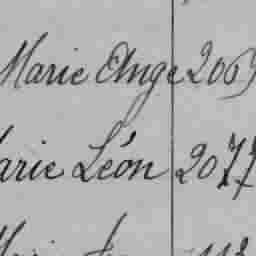 Marie Ange 2069
Marie Léon 2077